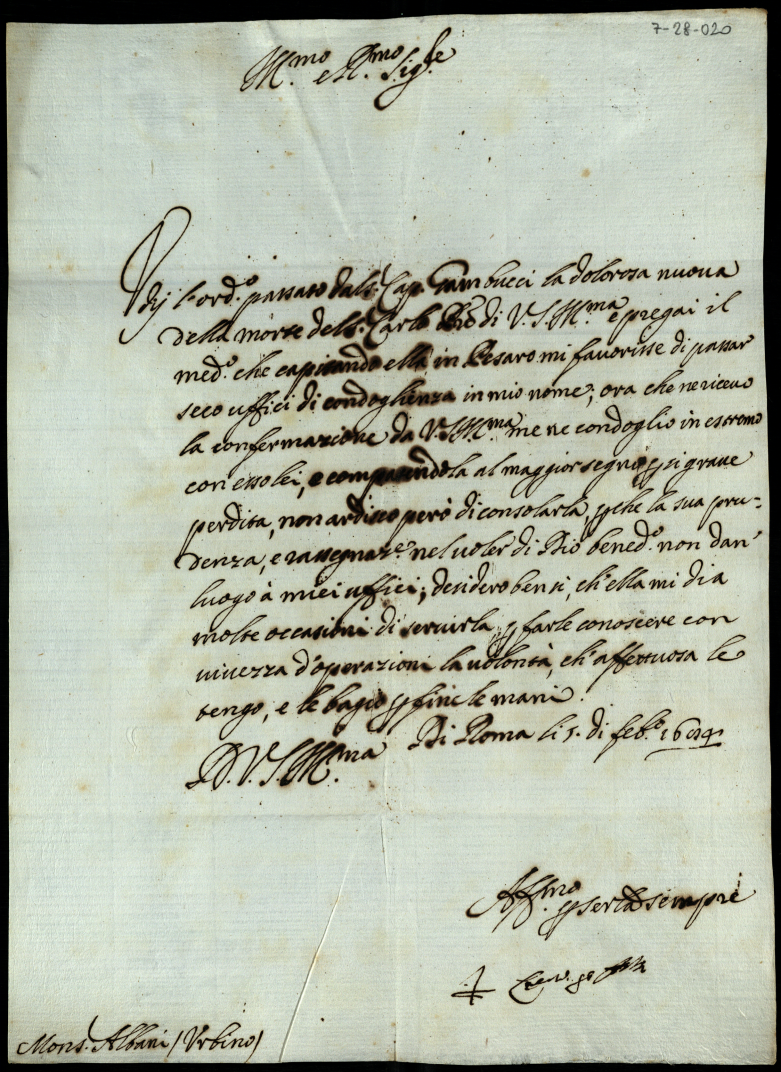 7-28-020
Ill.mo e R.mo Sig.re
Vdij l'ord.o passato dal S. Cap. Gambucci la dolorosa nuova
della morte del S. Carlo Zio di V.S. Ill.ma e pregai il
med.o che capitando ella in Pesaro mi favorisse di passar
seco uffici di condoglienza in mio nome; ora che ne ricevo
la confermazione da V.S. Ill.ma me ne condoglio in estremo
con esso lei, e compatendola al maggior segno p si grave
perdita, non ardisco però di consolarla, p che la sua pru=
denza, e rassegnaz.e nel voler di Dio bened.o non dan'
luogo à miei uffici; desidero bensi, ch'ella mi dia
molte occasioni di servirla, p farle conoscere con
vivezza d'operazioni la volontà, ch'affettuosa le
tengo, e le bagio p fine le mani.
D. V.S. Ill.ma Di Roma li 5. di feb.o
Aff.mo
p ser.la sempre
Mons. Albani (Vrbino)